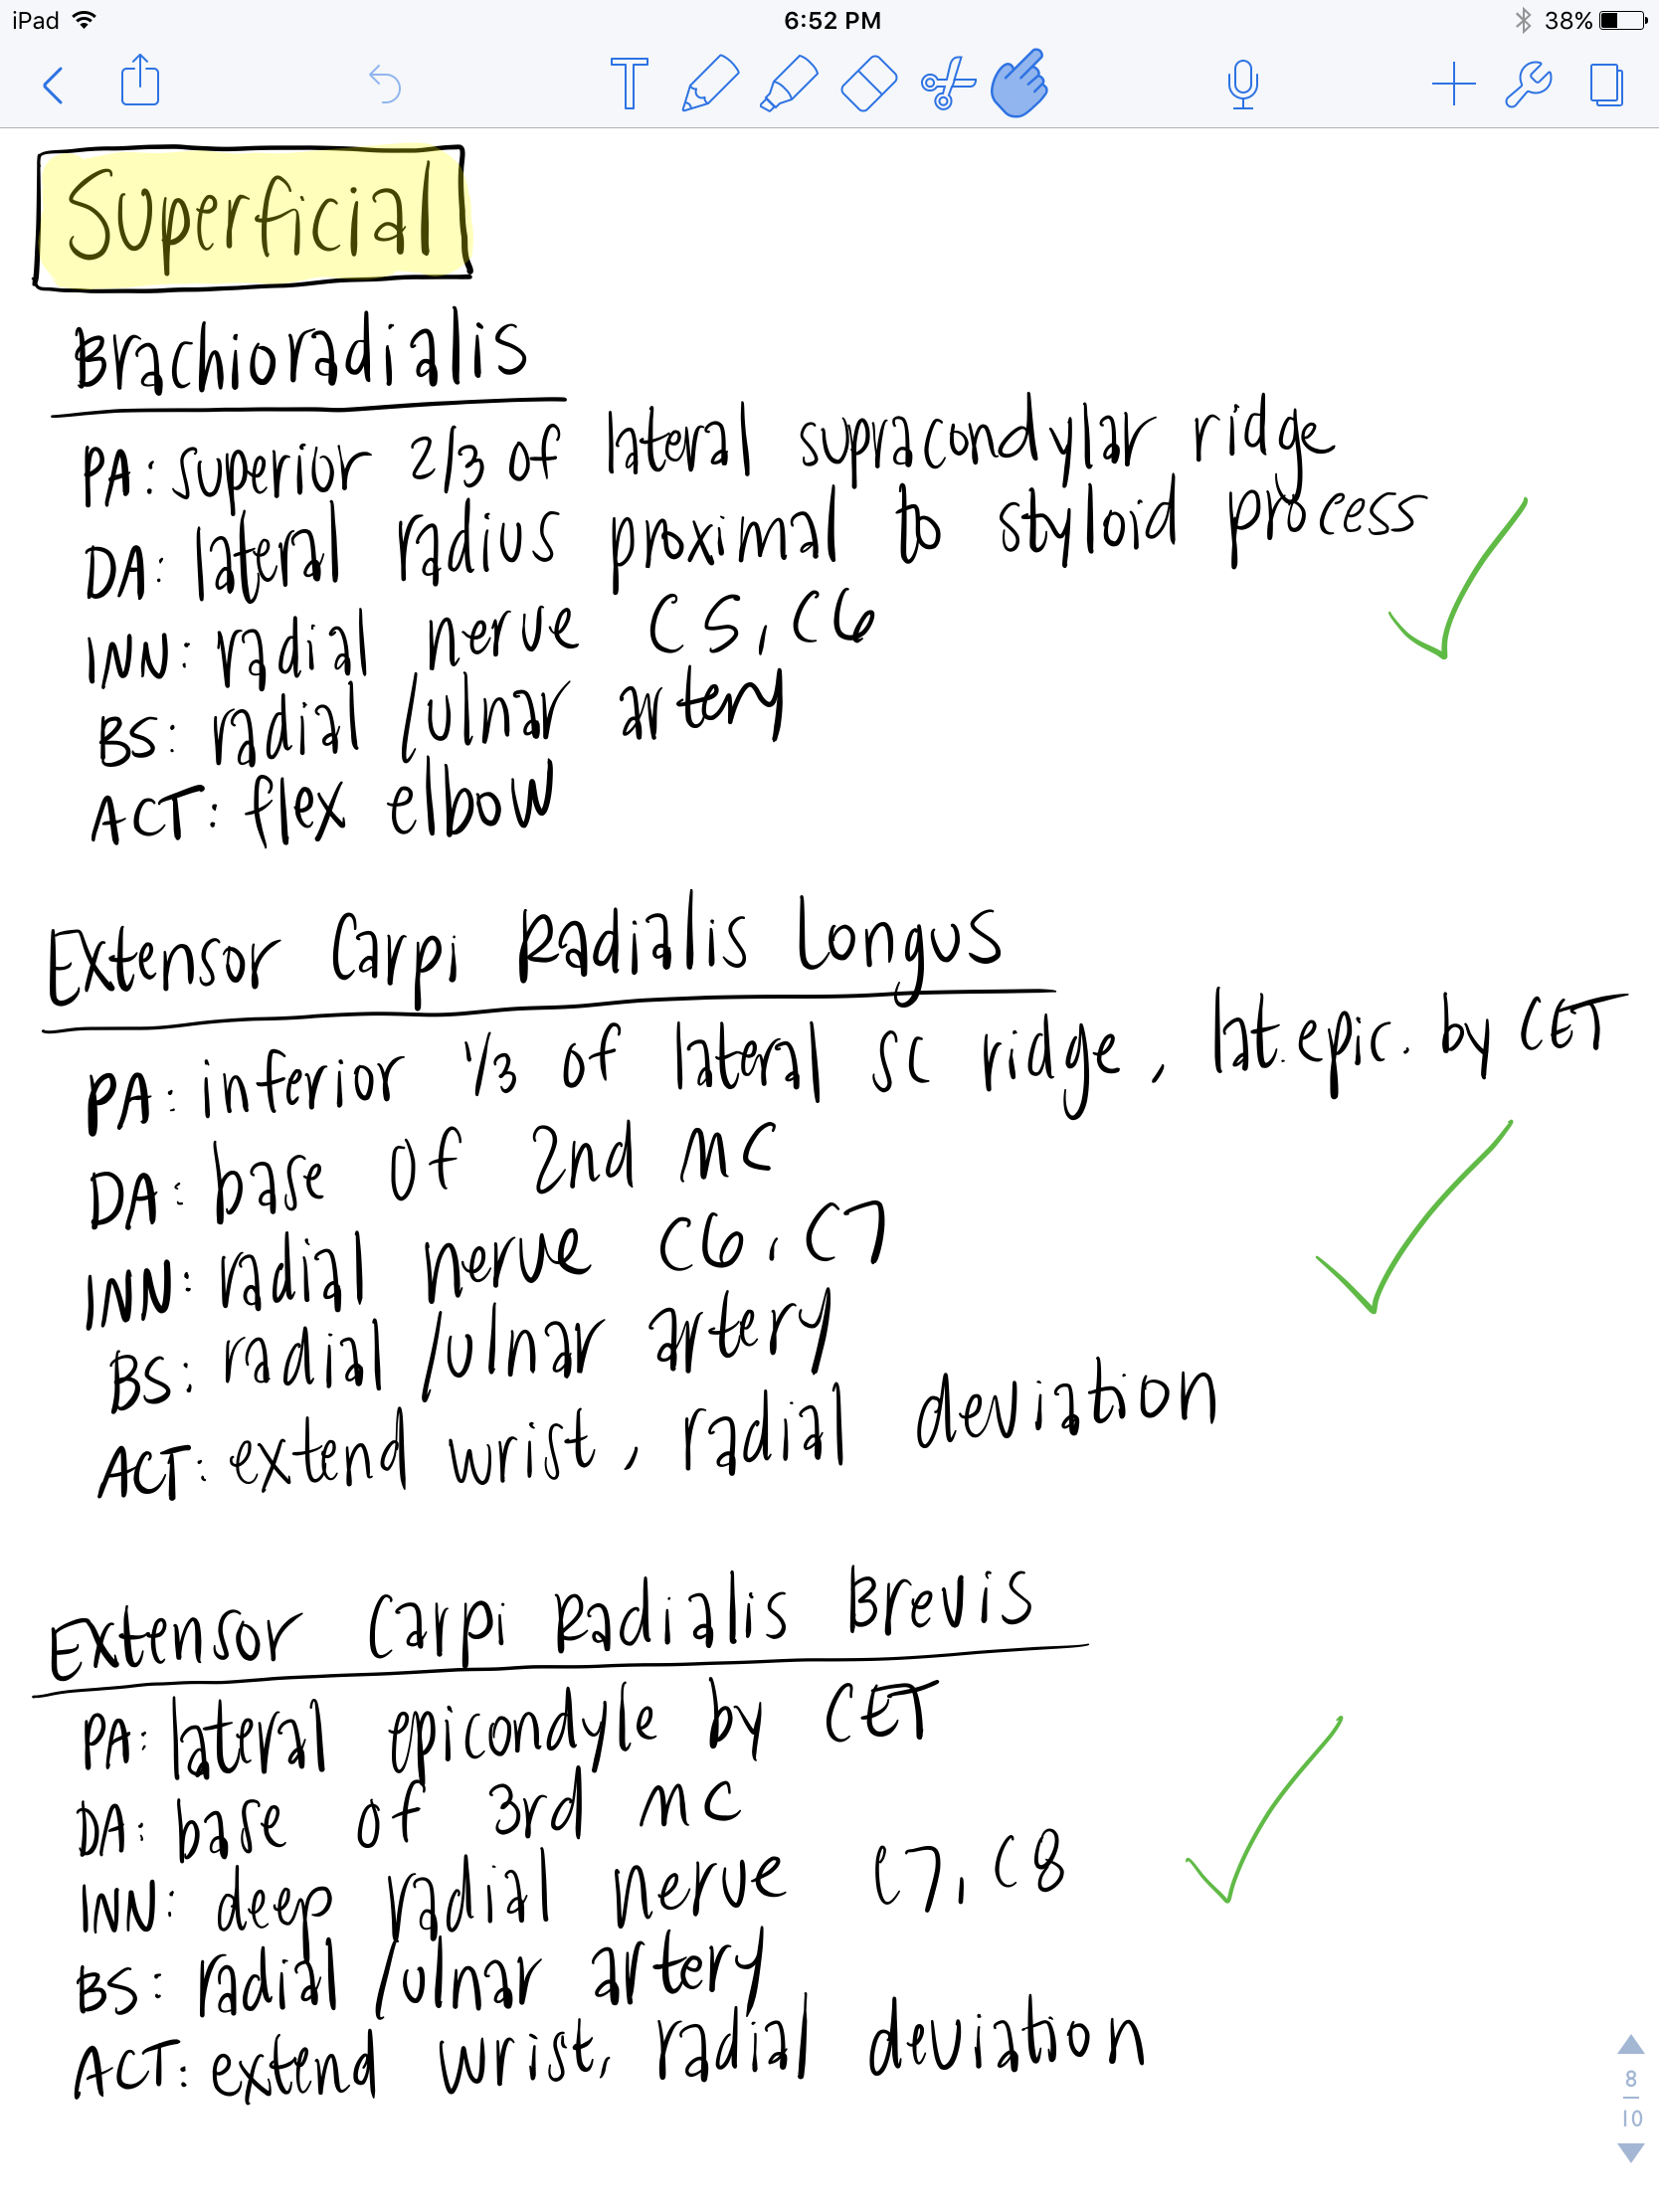 iPad 6:52 PM 38%
T
Superficial
Brachioradialis
PA: superior 2/3 of lateral supracondylar ridge
DA: lateral radius proximal to styloid process
INN: radial nerve C5, C6
BS: radial/ulnar artery
ACT: flex elbow
Extensor Carpi Radialis Longus
PA: inferior 1/3 of lateral SC ridge, lat. epic. by CET
DA: base of 2nd MC
INN: radial nerve C6, C7
BS: radial/ulnar artery
ACT: extend wrist, radial deviation
Extensor Carpi Radialis Brevis
PA: lateral epicondyle by CET
DA: base of 3rd MC
INN: deep radial nerve C7, C8
BS: radial/ulnar artery
ACT: extend wrist, radial deviation
8
10